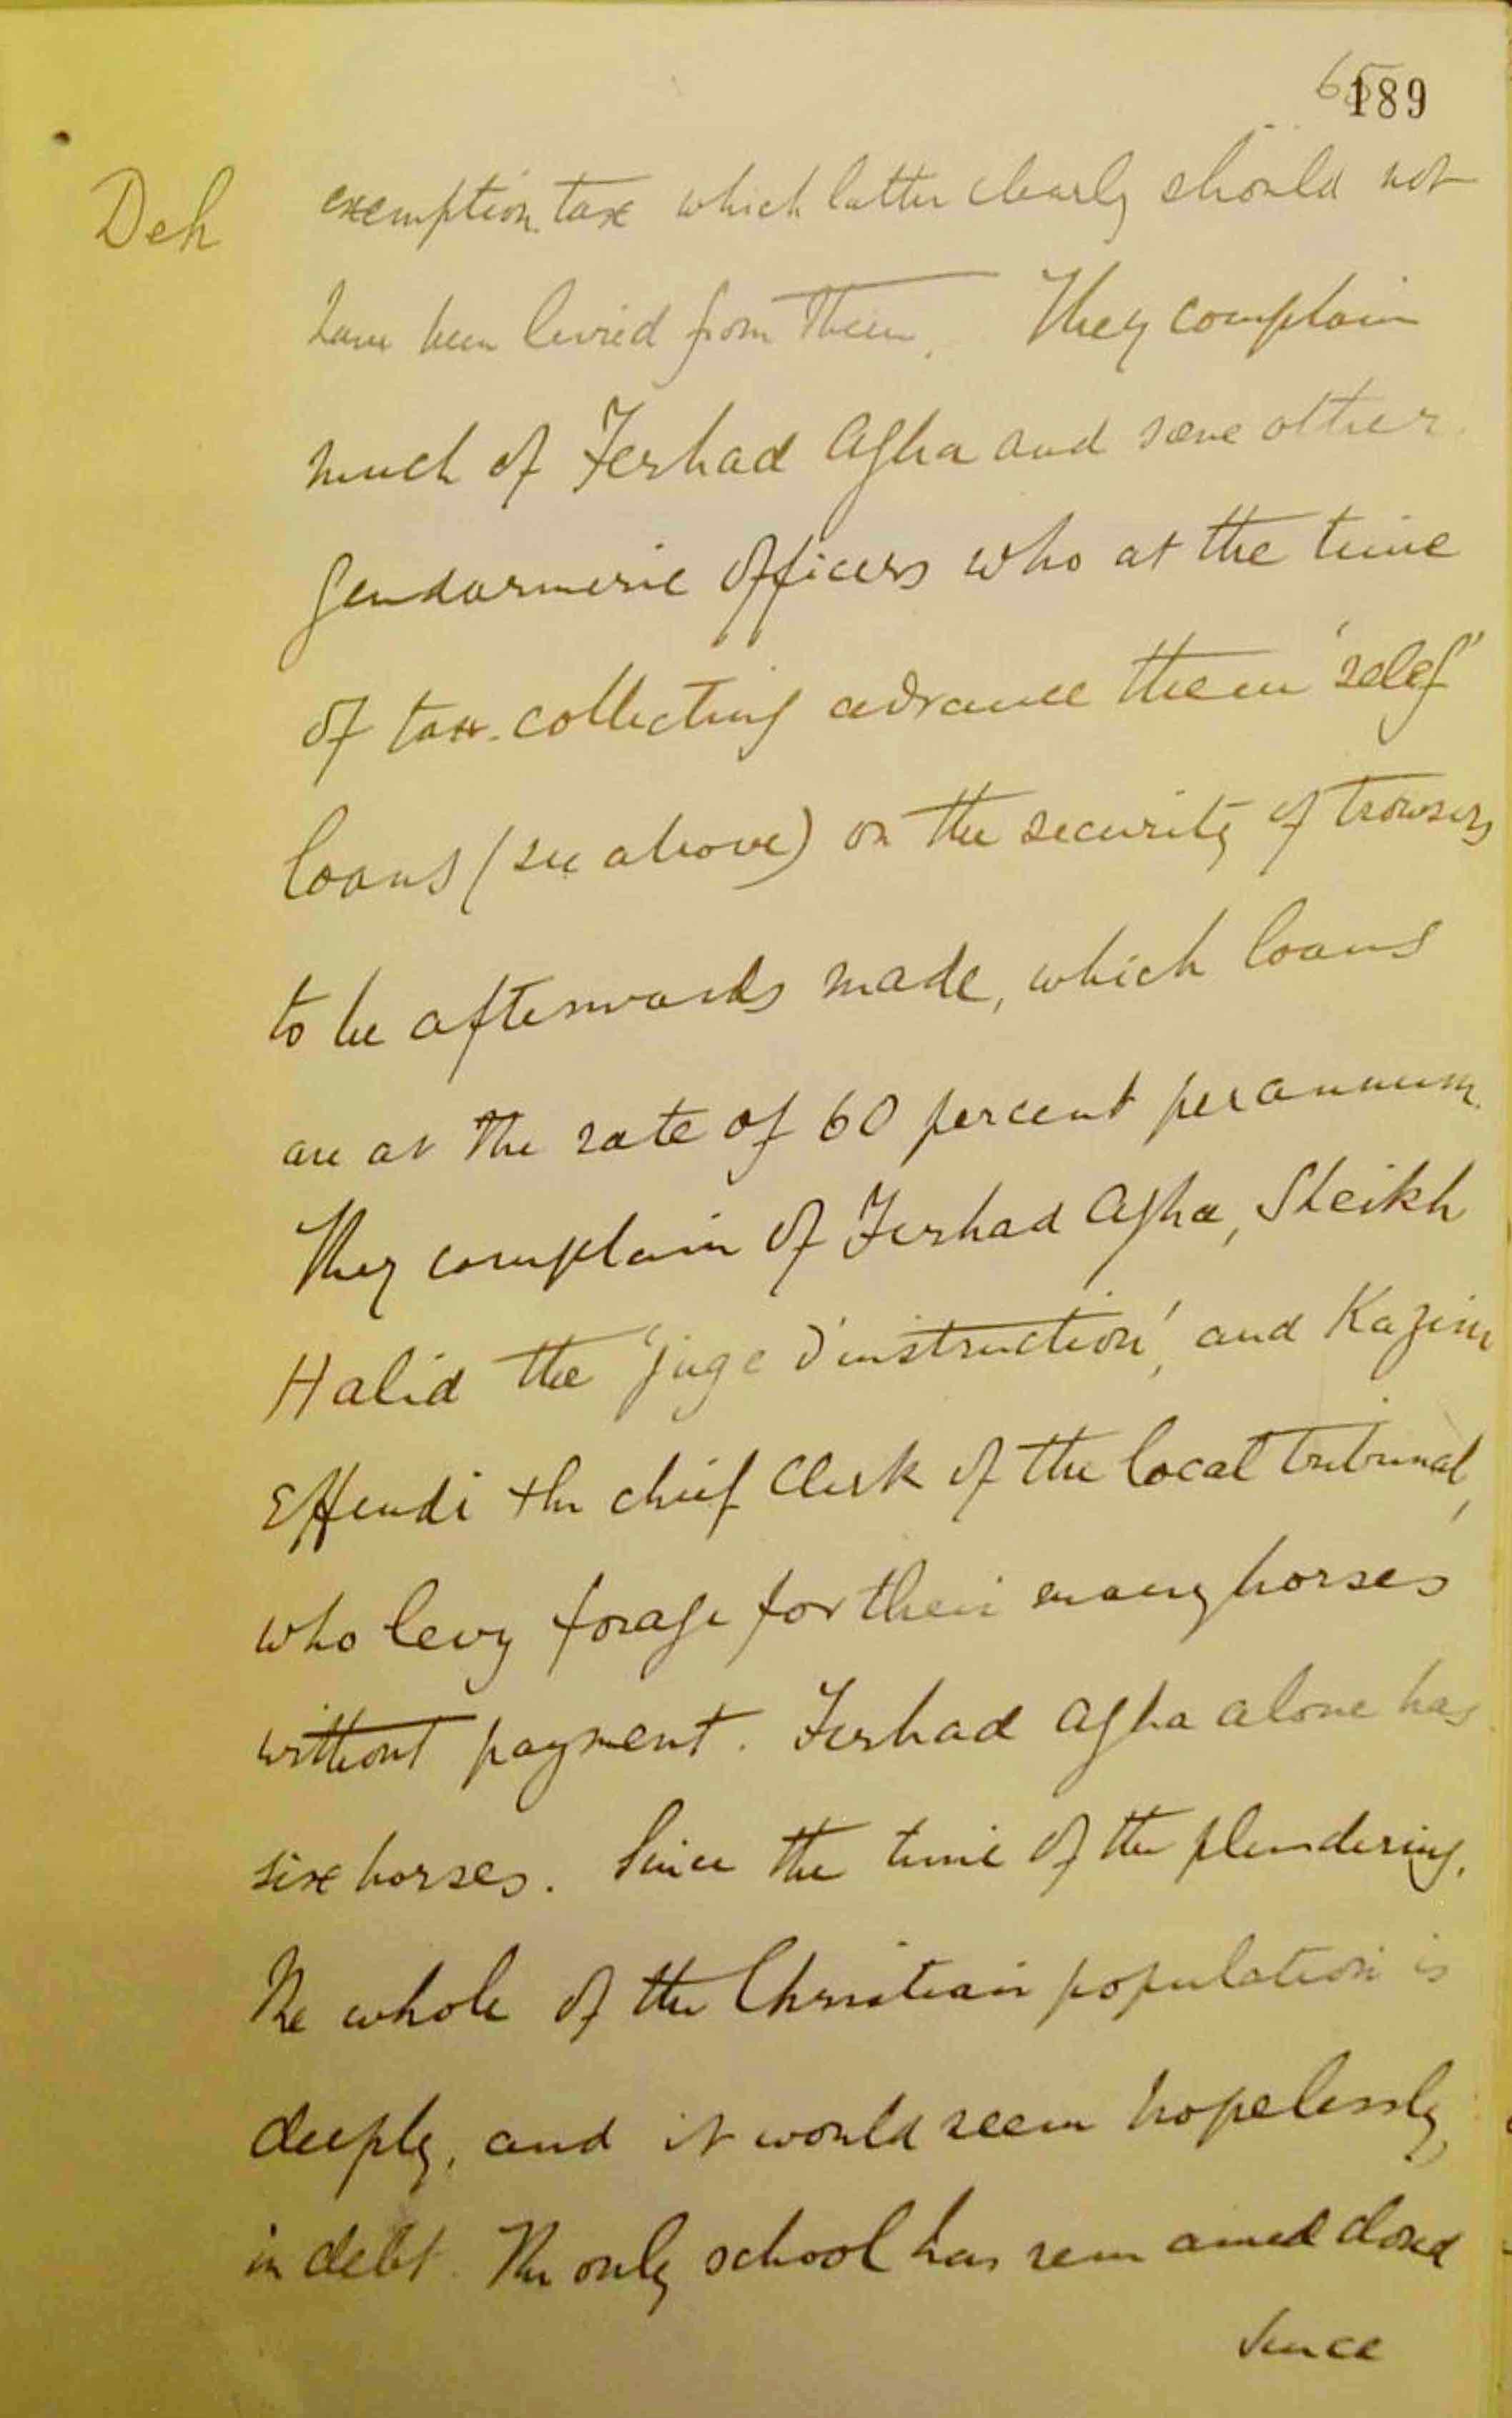 189
Deh
exemption tax which latter clearly should not
have been levied from them. They complain
much of Ferhad Agha and some other
gendarmerie officers who at the time
of tax-collecting advance them 'selef'
loans (see above) on the security of trousers
to be afterwards made, which loans
are at the rate of 60 percent per annum.
They complain of Ferhad Agha, Sheikh
Halid the 'juge d'instruction', and Kazim
Effendi the chief clerk of the local tribunal,
who levy forage for their many horses
without payment. Ferhad Agha alone has
six horses. Since the time of the plundering,
the whole of the Christian population is
deeply, and it would seem hopelessly,
in debt. The only school has remained closed
since